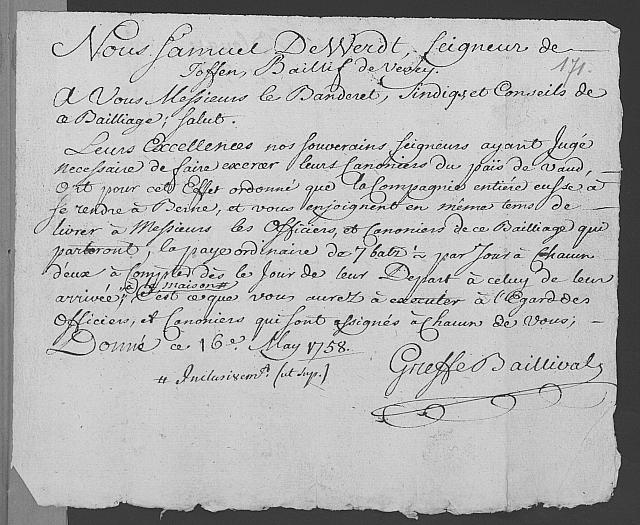 Nous Samuel De Werdt, Seigneur de
Toffen, Baillif de Vevey.
171.
A Vous Messieurs le Banderet, Sindiqs et Conseils de
ce Bailliage; Salut.
Leurs Excellences nos souverains seigneurs ayant Jugé
necessaire de faire exercer leurs Canoniers du païs de Vaud,
ont pour cet Effet ordonné que la Compagnie entiére eusse à
se rendre à Berne, et vous enjoignent en même tems de
livrer à Messieurs les Officiers, et Canoniers de ce Bailliage qui
partiront, la paye ordinaire de 7 batz par Jour à Chacun
d'eux à Compter dès le Jour de leur Depart à celuy de leur
arrivée, maison #
C'est ce que vous aurez à executer à l'Egard des
Officiers, et Canoniers qui sont assignés à Chacun de Vous;
Donné ce 16e. May 1758.
Greffe Baillival
# Inclusivemt. (ut sup.)